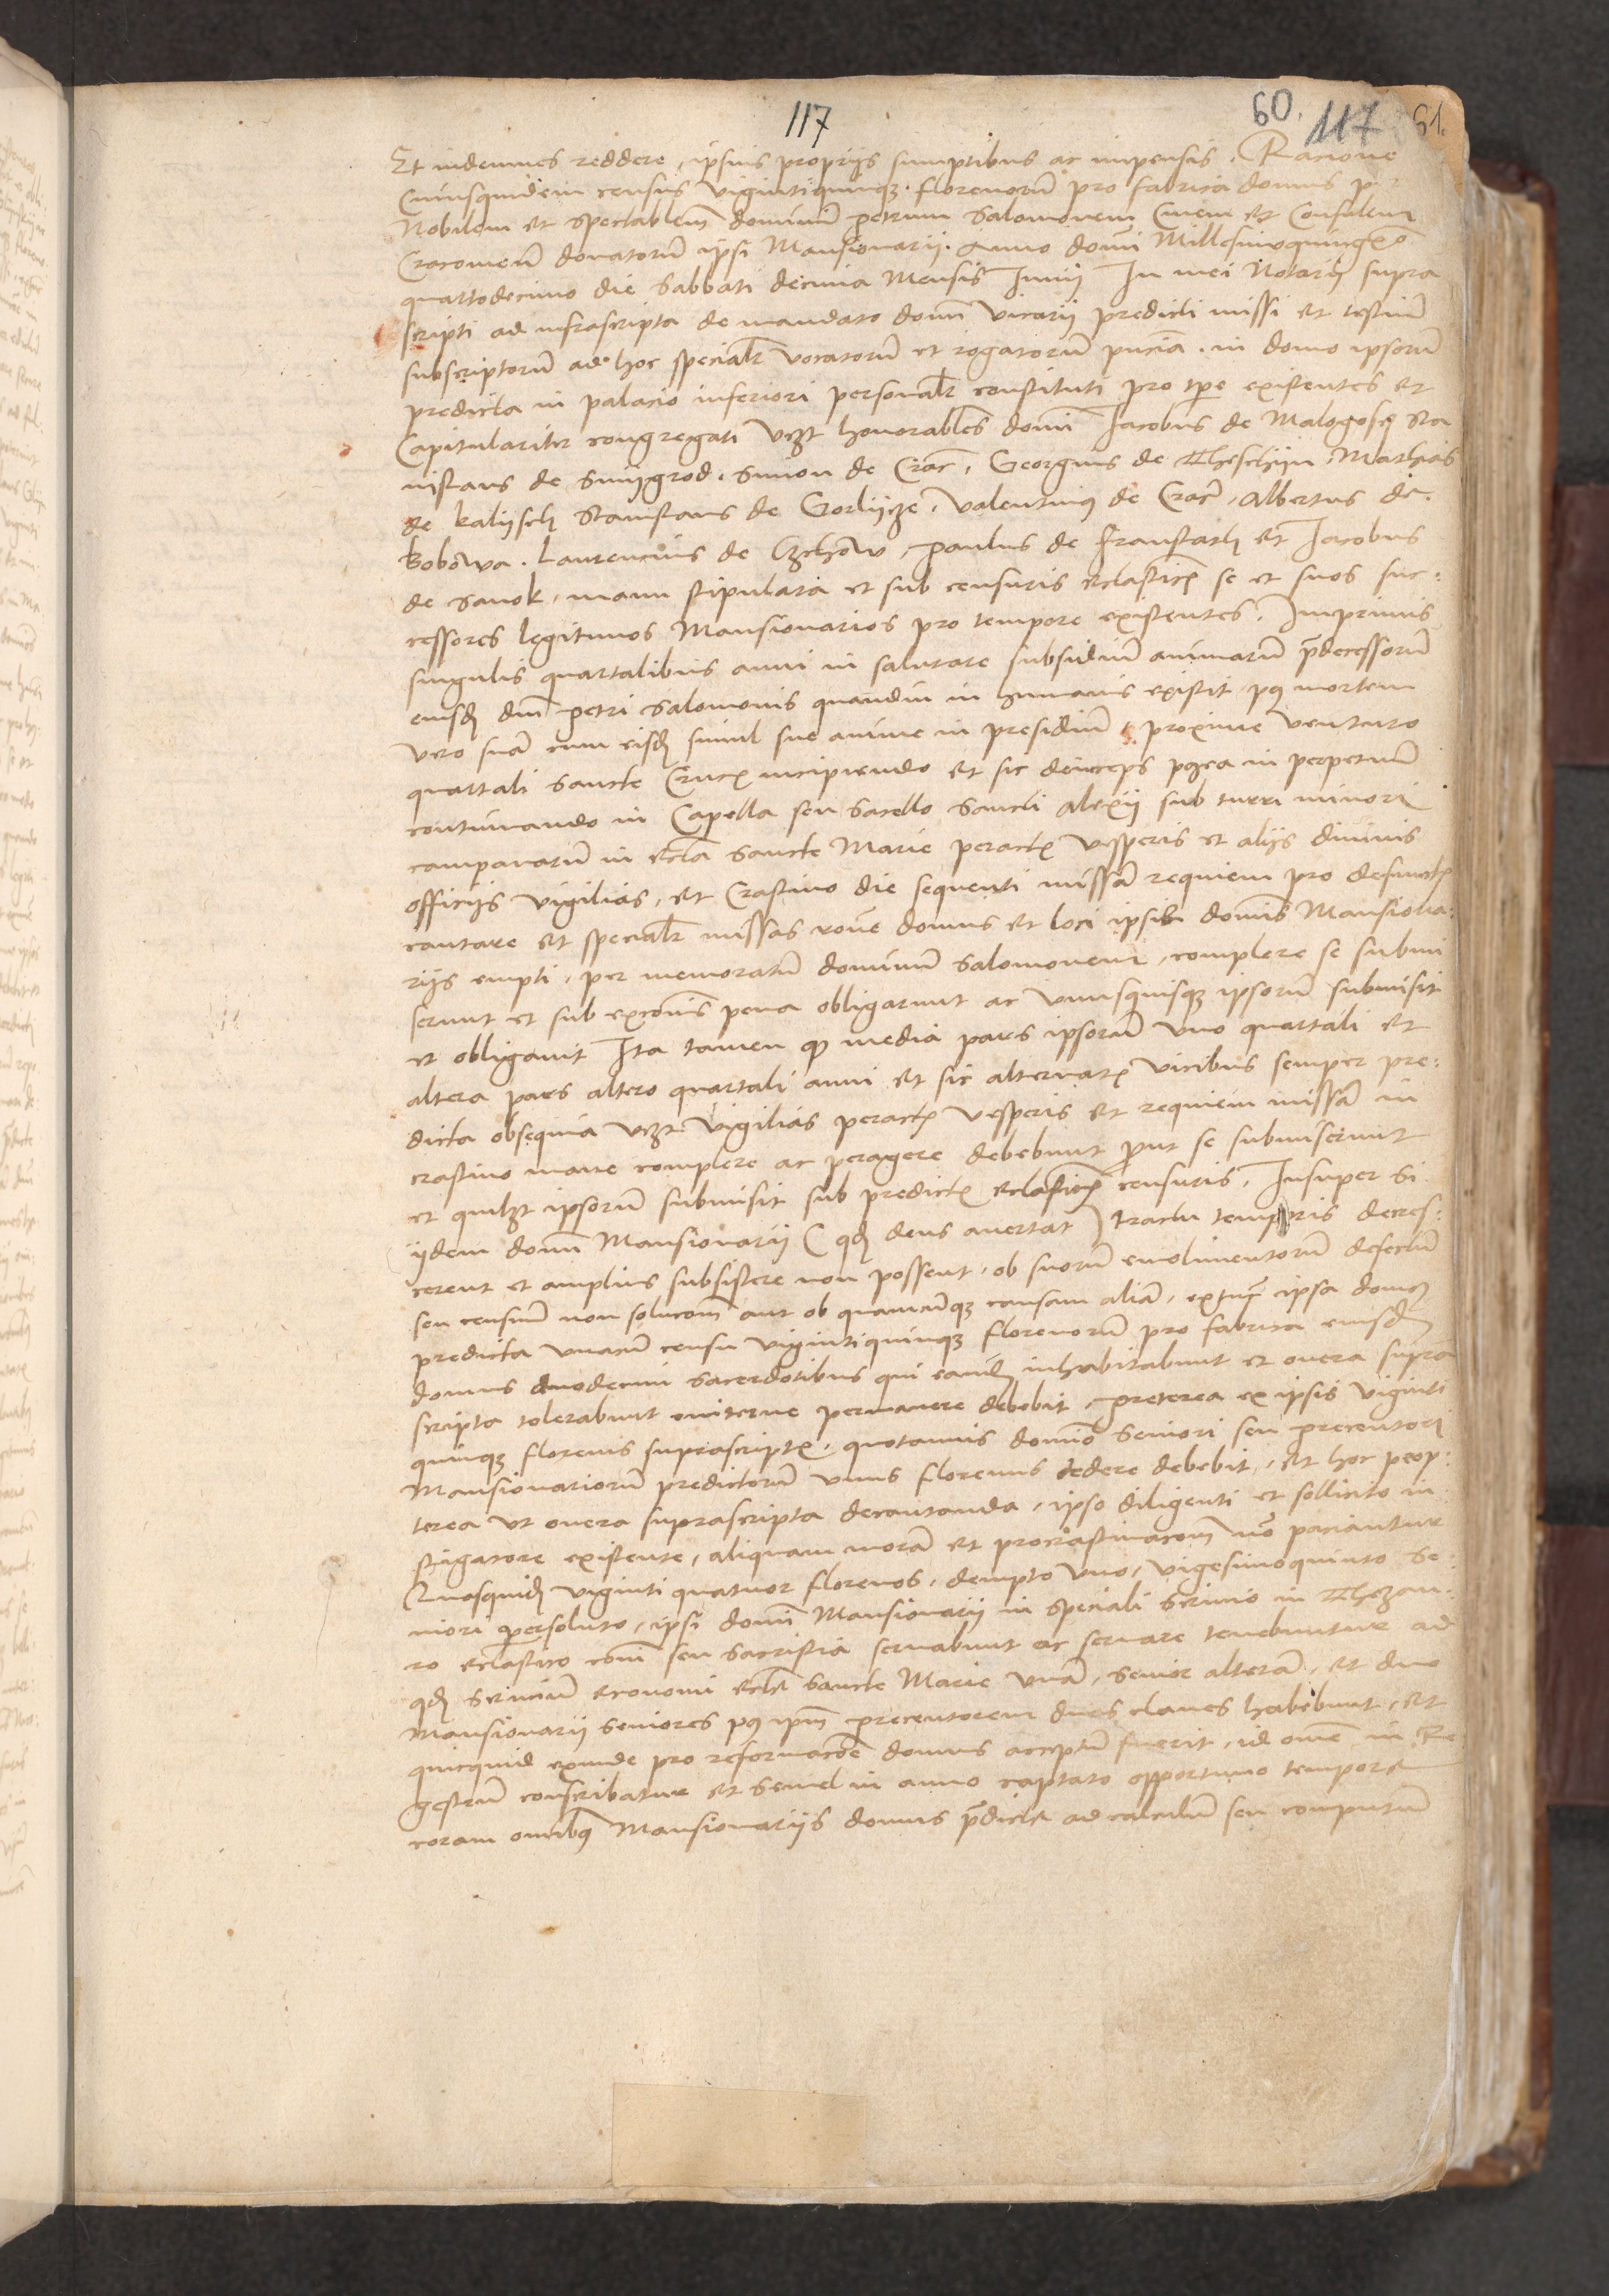 117
60. 117 61.
Et indemnes reddere, ipsius proprijs sumptibus ac impensis. Racione
Cuiusquidem census vigintiquinqꝫ florenorū pro fabrica domus p
Nobilem et spectabilem dominū petrum Salomonem Civem et Consulem
Cracovieñ donatorū ipsi Mansionarii. Anno domī Millesimoquingēo
quartodecimo die Sabbati decima Mensis Junij In mei Notarij supra
scripti ad infrascripta de mandato domī vicarij predicti missi et testiū
subscriptorū ad hoc specialr vocatorū et rogatorū pn̄cia. in domo ipsorū
predicta in palacio inferiori personalr constituti pro tp̄e existentes et
Capitulariter congregati vꝫt honorabiles domī Jacobus de Malogosch Sta
nislaus de Smijgrod. Simon de Crac̄. Georgius de Theschijn. Mathias
de kalijsch Stanislaus de Gorlijcze, Valentinus de Crac̄, Albertus de
Bobowa. Laurencius de Czchow, paulus de Fraustath et Jacobus
de Sanok, manu stipulata et sub censuris ecl̄asticꝭ se et suos suc:
cessores legitimos Mansionarios pro tempore existentes. Imprimis
singulis quartalibus anni in salutare subsidiū animarū p̄decessorū
eiusdꝫ dnī petri Salomonis quamdiu in humanis existit pꝰ mortem
vero suā cum eisdꝫ simul sue anime in presidiū proxime venturo
quartali sancte Crucꝭ incipiendo et sic deinceps pꝰea in perpetuū
continuando in Capella seu Sacello Sancti Alexij sub turri minori
campanarū in eccl̄ia Sancte Marie peractꝭ vesperis et alijs divinis
officijs vigilias, et Crastino die sequenti missā requiem pro defunctꝭ
cantare et specialr missas rōne domus et loci ipsis domīs Mansiona:
rijs empti, per memoratū dominū Salomonem, complere se submi
serunt et sub exc̄ōnis pena obligarunt ac vnusquisqꝫ ipsorū submisit
et obligavit Ita tamen qꝫ media pars ipsorū vno quartali et
altera pars altero quartali anni et sic alternatꝭ vicibus semper pre:
dicta obsequia vꝫt vigilias peractꝭ vesperis et requiem missā in
crastino mane complere ac peragere debebunt prout se submiserunt
et quilꝫt ipsorū submisit sub predictꝭ ecl̄asticꝭ censuris. Insuper si
ijdem domī Mansionarii (qdꝫ deus avertat) tractu temporis decres:
cerent et amplius subsistere non possent, ob suorū emolimentorū defectū
seu censuū non solucōnem aut ob quamcūqꝫ causam aliā, extūc ipsa domꝰ
predicta vnacū censu vigintiquinqꝫ florenorū pro fabrica eiusdꝫ
domus duodecim sacerdotibus qui eandꝫ inhabitabunt et onera supra
scripta tolerabunt eviterne permanere debebit, preterea ex ipsis viginti
quinqꝫ florenis suprascriptꝭ, quotannis domīo Seniori seu precentori
Mansionariorū predictorū vnus florenus cedere debebit, et hoc prop:
terea vt onera suprascripta decantanda, ipso diligenti et sollicito in
stigatore existente, aliquam morā et procrastinacōem nō paciantur
Quosquidꝫ viginti quatuor florenos, dempto vno, vigesimoquinto Se:
niori persoluto, ipsi domī Mansionarij in speciali scrinio in Thezau:
ro ecl̄astico cōi seu Sacristia servabunt ac servare tenebuntur ad
qdꝫ scriniū economi eccl̄ie Sancte Marie vnā, Senior alterā, et duo
Mansionarij seniores pꝰ ipm̄ precentorem duas claves habebunt, et
quicquid exinde pro reformacōne domus acceptū fuerit, id om̄e in Re
gestrū conscribatur et semel in anno captato opportuno tempore
coram omībꝰ Mansionarijs domus p̄dicte ad calculū seu computū